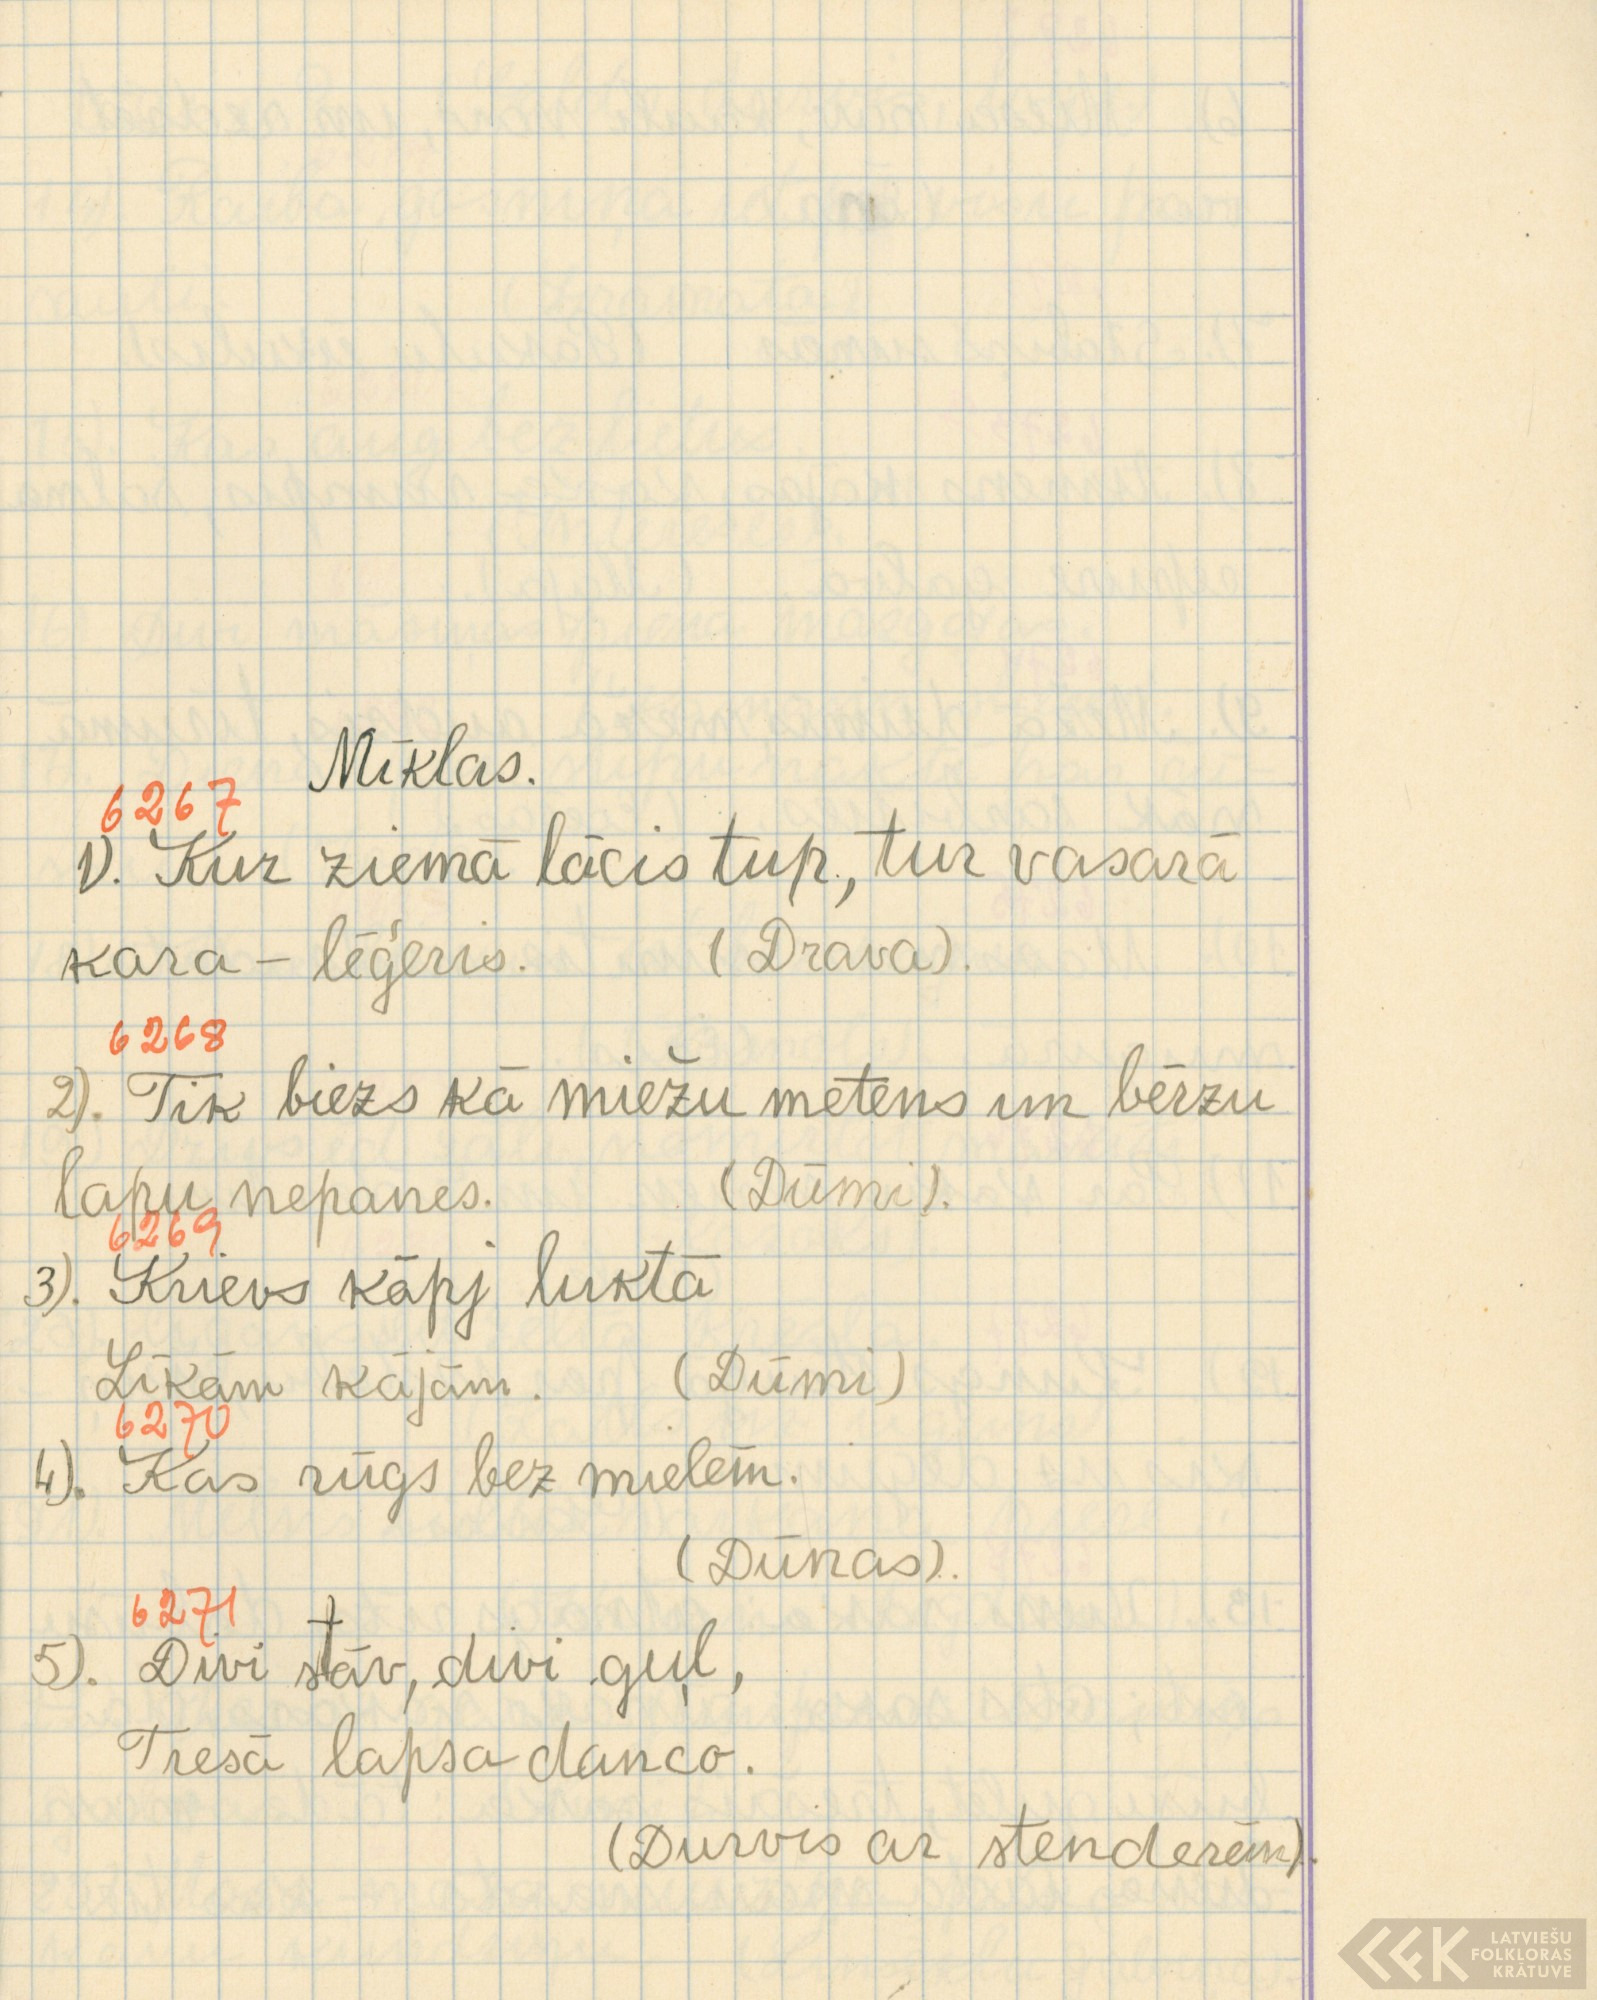 Mīklas.
6267
1). Kur ziemā lācis tup, tur vasarā
kara – lēģeris. (Drava).
6268
2). Tik biezs kā miežu mētens un bērzu
lapu nepanes. (Dūmi).
6269
3). Krievs kāpj luktā
Līkām kājām. (Dūmi)
6270
4). Kas rūgs bez mielēm.
(Dūņas).
6271
5). Divi stāv, divi guļ,
Tresā lapsa danco.
(Durvis ar stenderēm).
LATVIEŠU
FOLKLORAS
KRĀTUVE